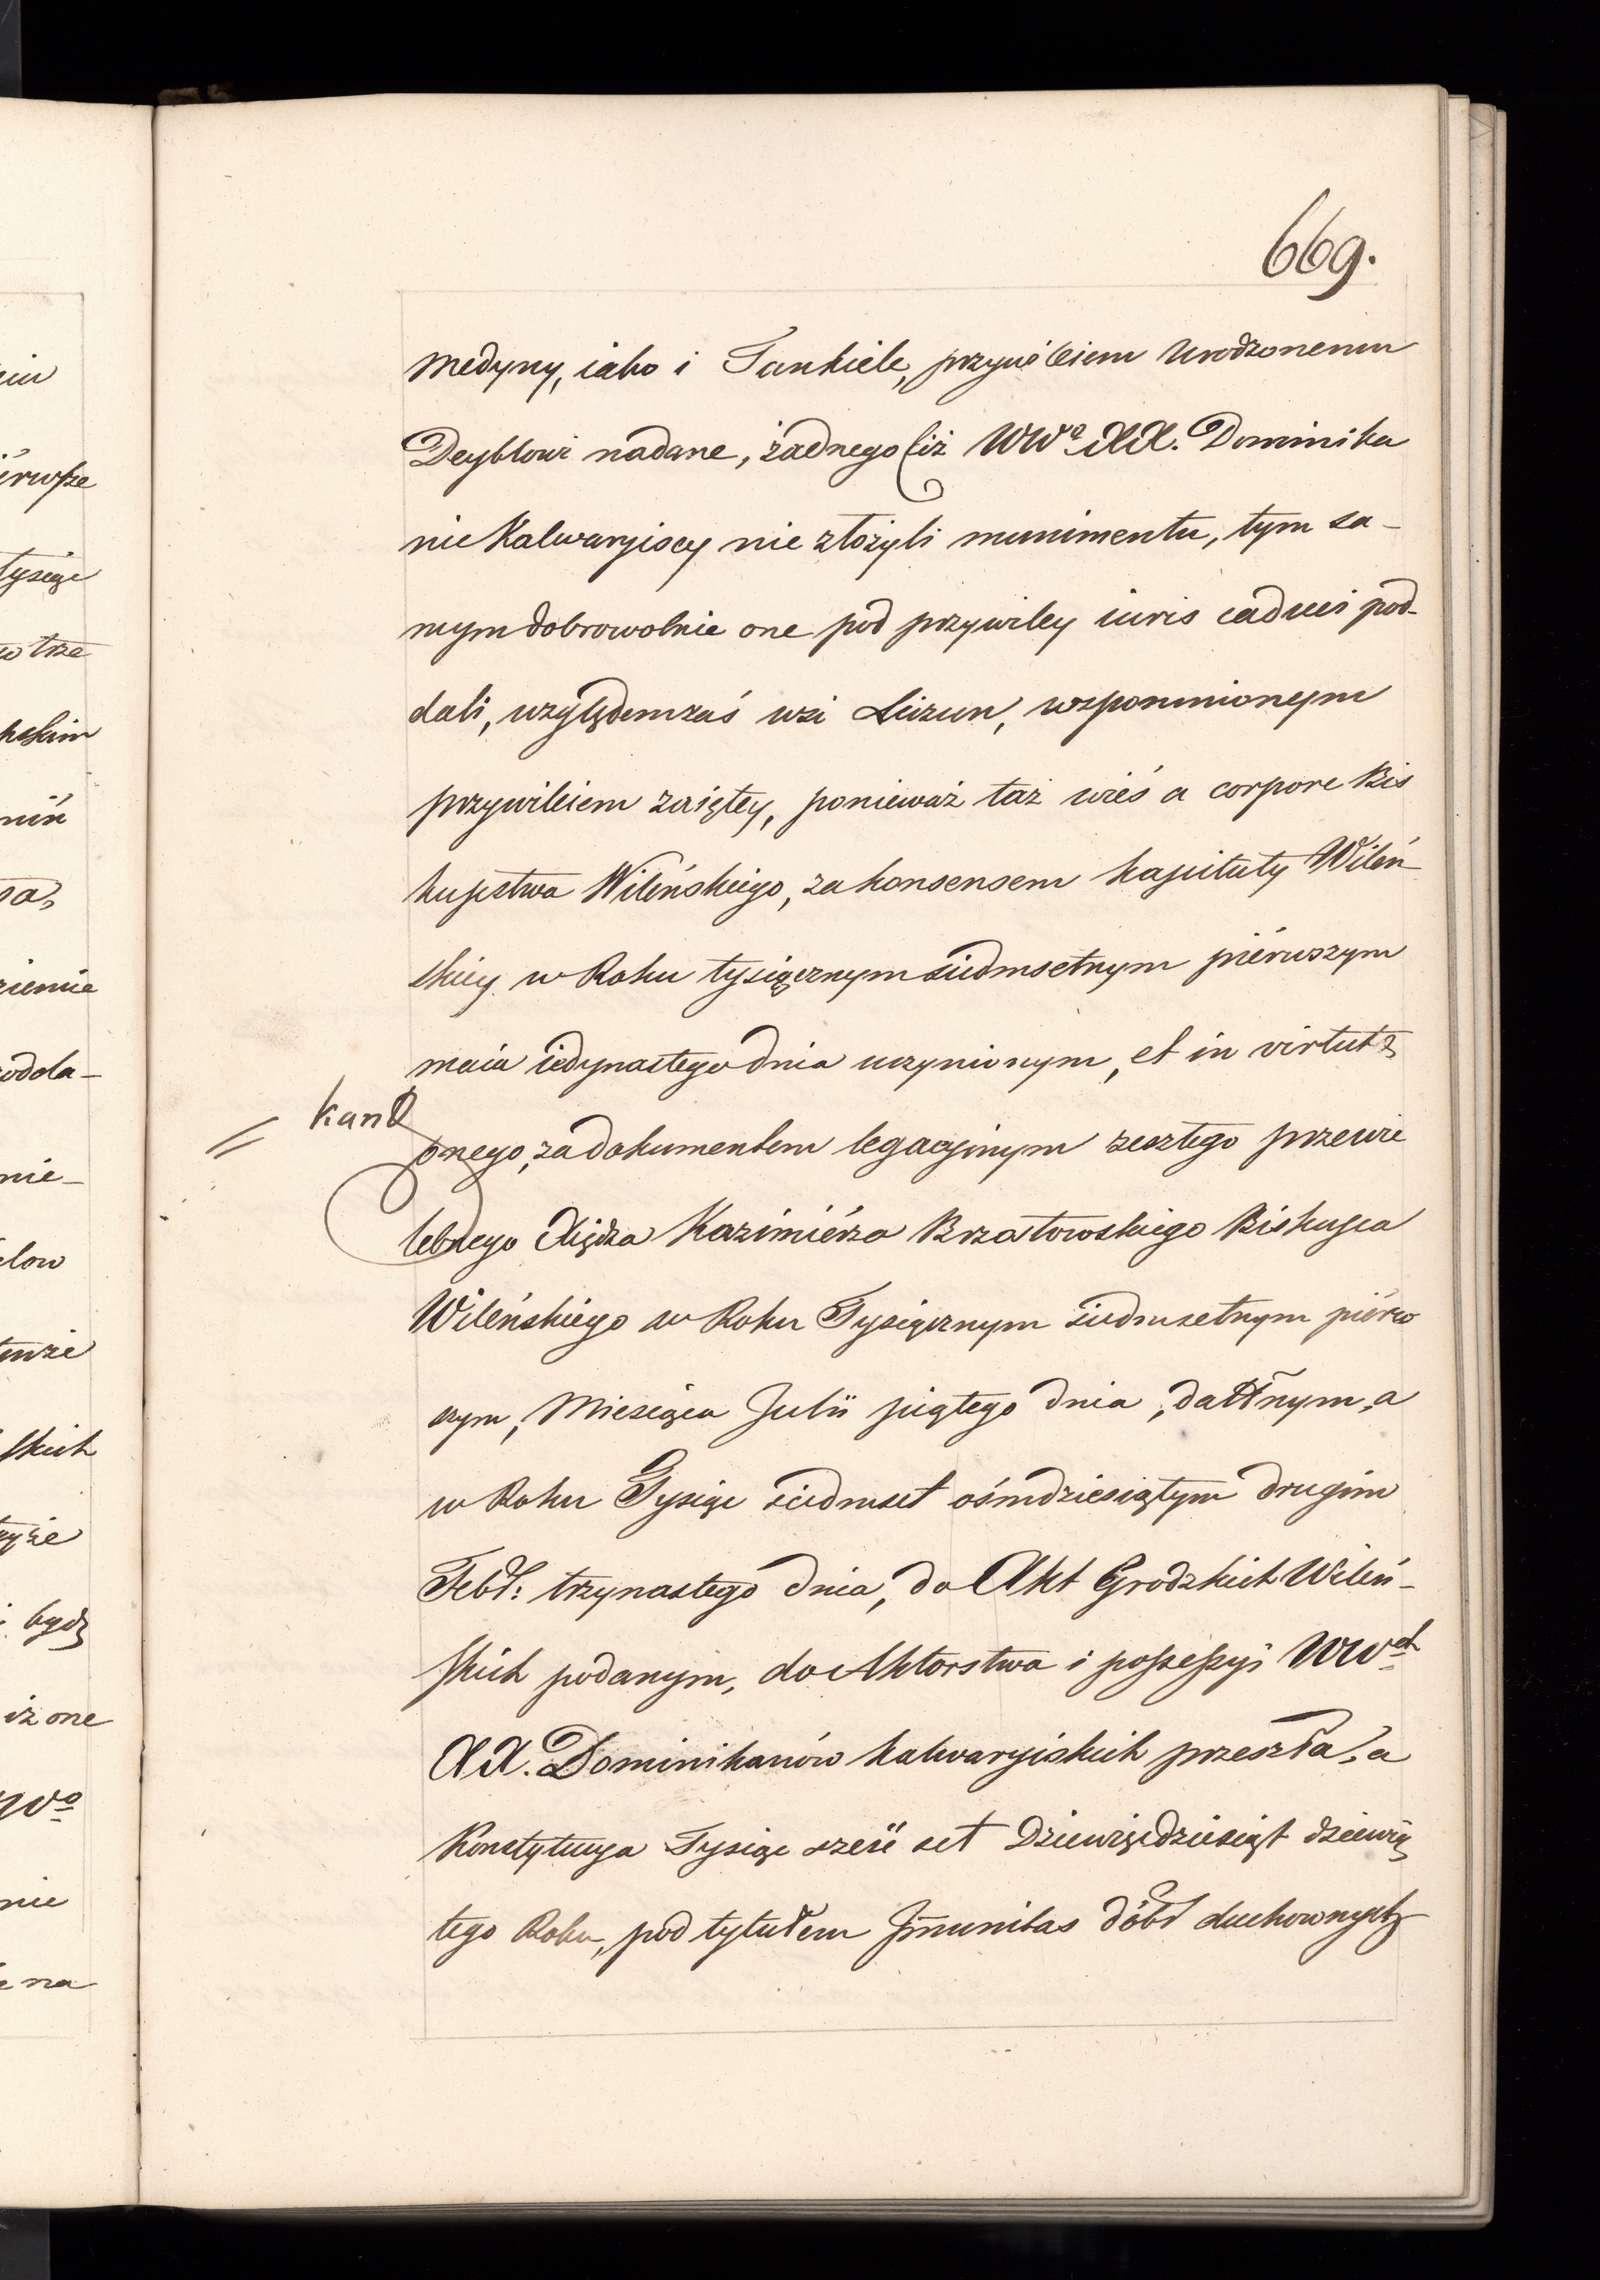 669.
Medyny, iako i Tankiele, przywileiem Urodzonemu
Deyblowi nadane, żadnego (iż WW⁰ XX. Dominika
nie Kalwaryiscy nie złożyli munimentu, tym sa-
mym dobrowolnie one pod przywiley iuris caduci pod-
dali, względem zaś wsi Luzun, wspomnionym
przywileiem zaiętey, ponieważ taż wieś a corpore Bis
kupstwa Wileńskiego, za konsensem Kapituły Wileń
skiey w Roku tysiącznym siedmsetnym piérwszym
maia iedynastego dnia uczynionym, et in virtutę
= Kan
onego, za dokumentem legacyinym zeszłego przewie
lebnego Xiędza Kazimiérza Brzostowskiego Biskupa
Wileńskiego w Roku Tysiącznym siedmsetnym piérw
szym, Miesiąca Julii piątego dnia, dattnym, a
w Roku Tysiąc siedmset ośmdziesiątym drugim
Febr: trzynastego dnia, do Akt Grodzkich Wileń-
skich podanym, do Aktorstwa i possessyi WWch
XX. Dominikanów kalwaryiskich przeszła, a
Konstytucya Tysiąc sześć set Dziewięćdziesiąt dziewią
tego Roku, pod tytułem Im̃unitas dóbr duchownych